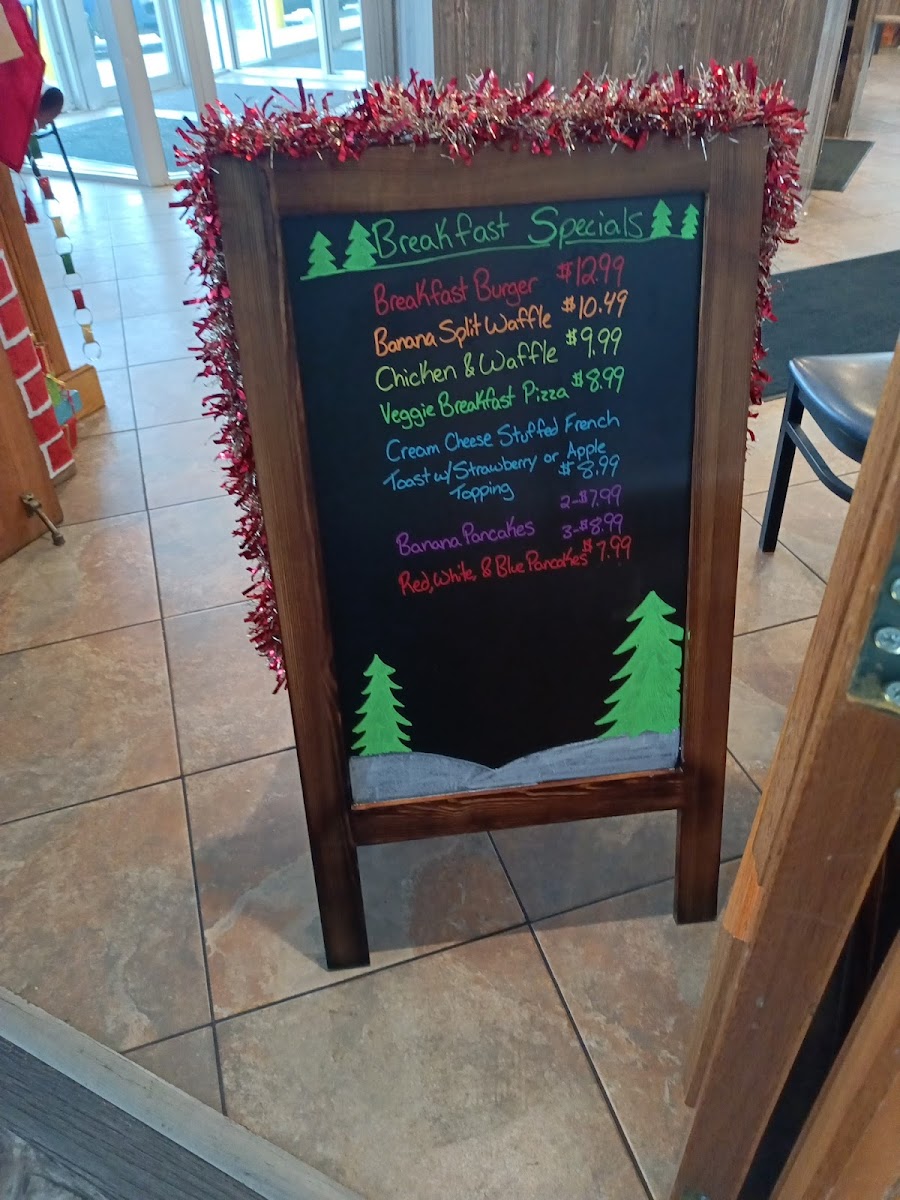 Breakfast Specials
Breakfast Burger $12.99
Banana Split Waffle $10.49
Chicken & Waffle $9.99
Veggie Breakfast Pizza $8.99
Cream Cheese Stuffed French
Toast w/ Strawberry or Apple
Topping $8.99
2-$7.99
Banana Pancakes 3-$8.99
Red, White, & Blue Pancakes $7.99